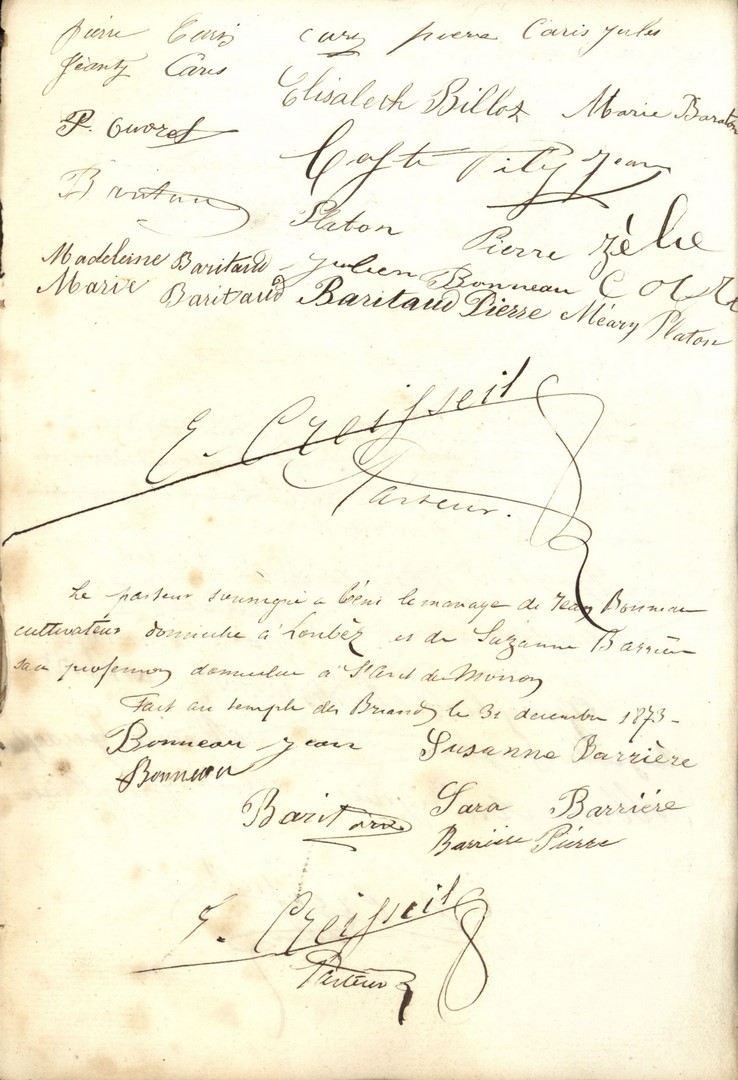 pierre Caris cary pierre Caris jules
Jeanty Caris
Elisabeth Billoz Marie Baraton
P. Guoref
Coste Pily Jean
Baritaud
Platon Pierre zélie
Madeleine Baritaud julien Bonneau Coste
Marie Baritaud Baritaud Pierre Méary Platon
E. Creisseil
Pasteur.
Le pasteur soussigné a béni le mariage de Jean Bonneau
cultivateur domicilié à Loubès et de Suzanne Barrière
san profession domiciliée à St Avit du Moiron
Fait au temple des Briands le 31 decembre 1873 -
Bonneau jean Susanne Barrière
Bonneau
Baritaud Sara Barriére
Barriére Piérre
E. Creisseil
Pasteur